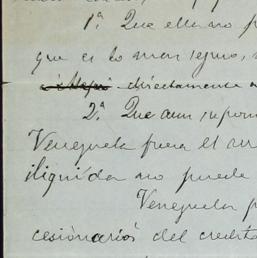 1.ª Que ella no
que es lo mas seguro,
directamente
2.ª Que aun, supon
Venezuela fuera el
iliquida no puede
Venezuela p
cesionarios del credito